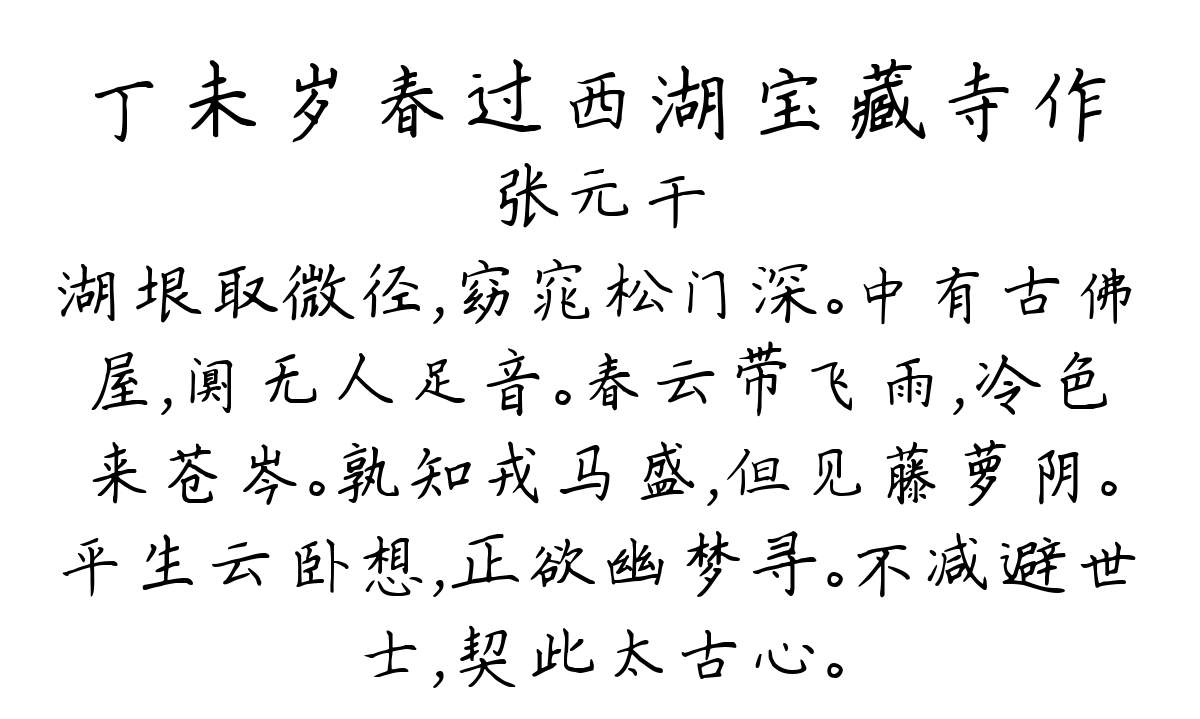 丁未岁春过西湖宝藏寺作
张元干
湖垠取微径,窈窕松门深。中有古佛
屋,阒无人足音。春云带飞雨,冷色
来苍岑。孰知戎马盛,但见藤萝阴。
平生云卧想,正欲幽梦寻。不减避世
士,契此太古心。